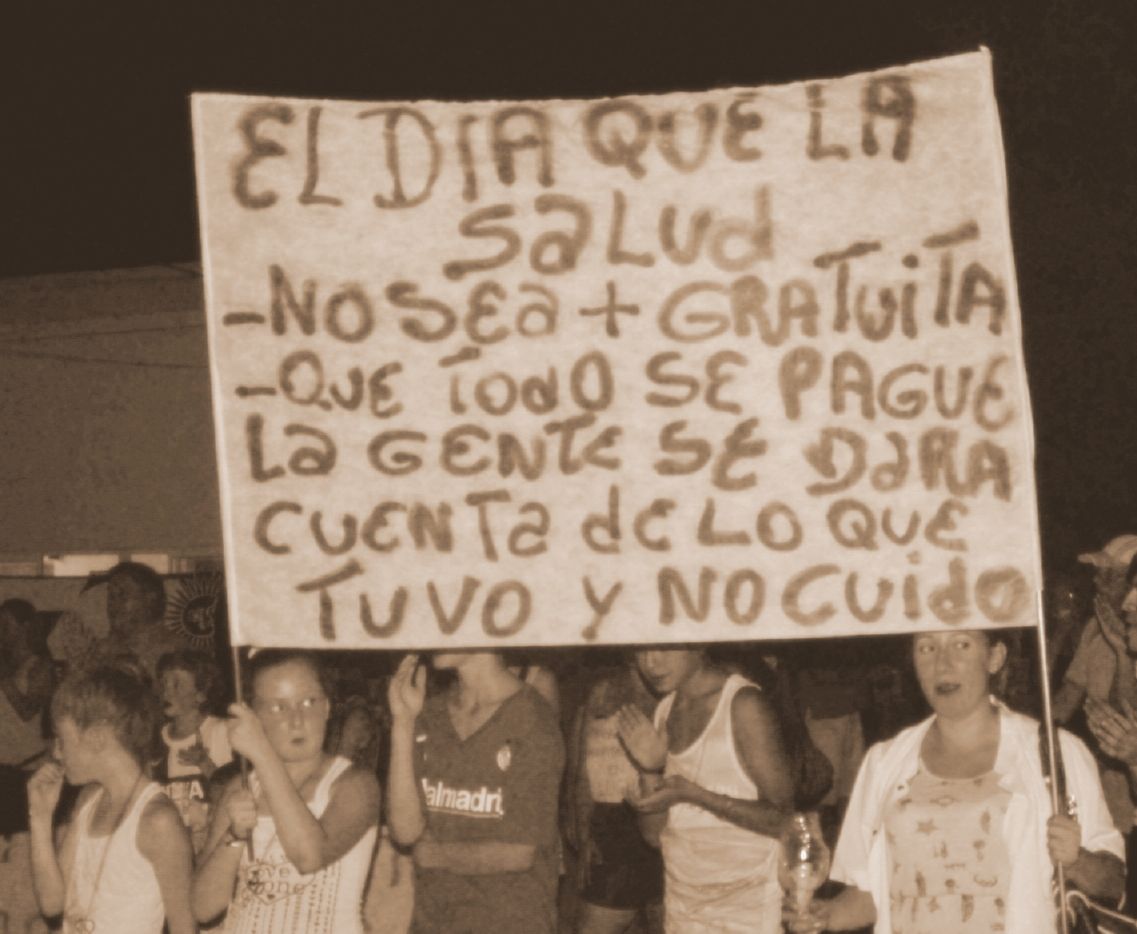 EL DIA QUE LA
SaLud
-NO SEa + GRATUiTA
-QUE TodO SE PAGUE
La GENTE SE DaRA
CUENTa dE LO QUE
TUVO Y NO CUido
almadri